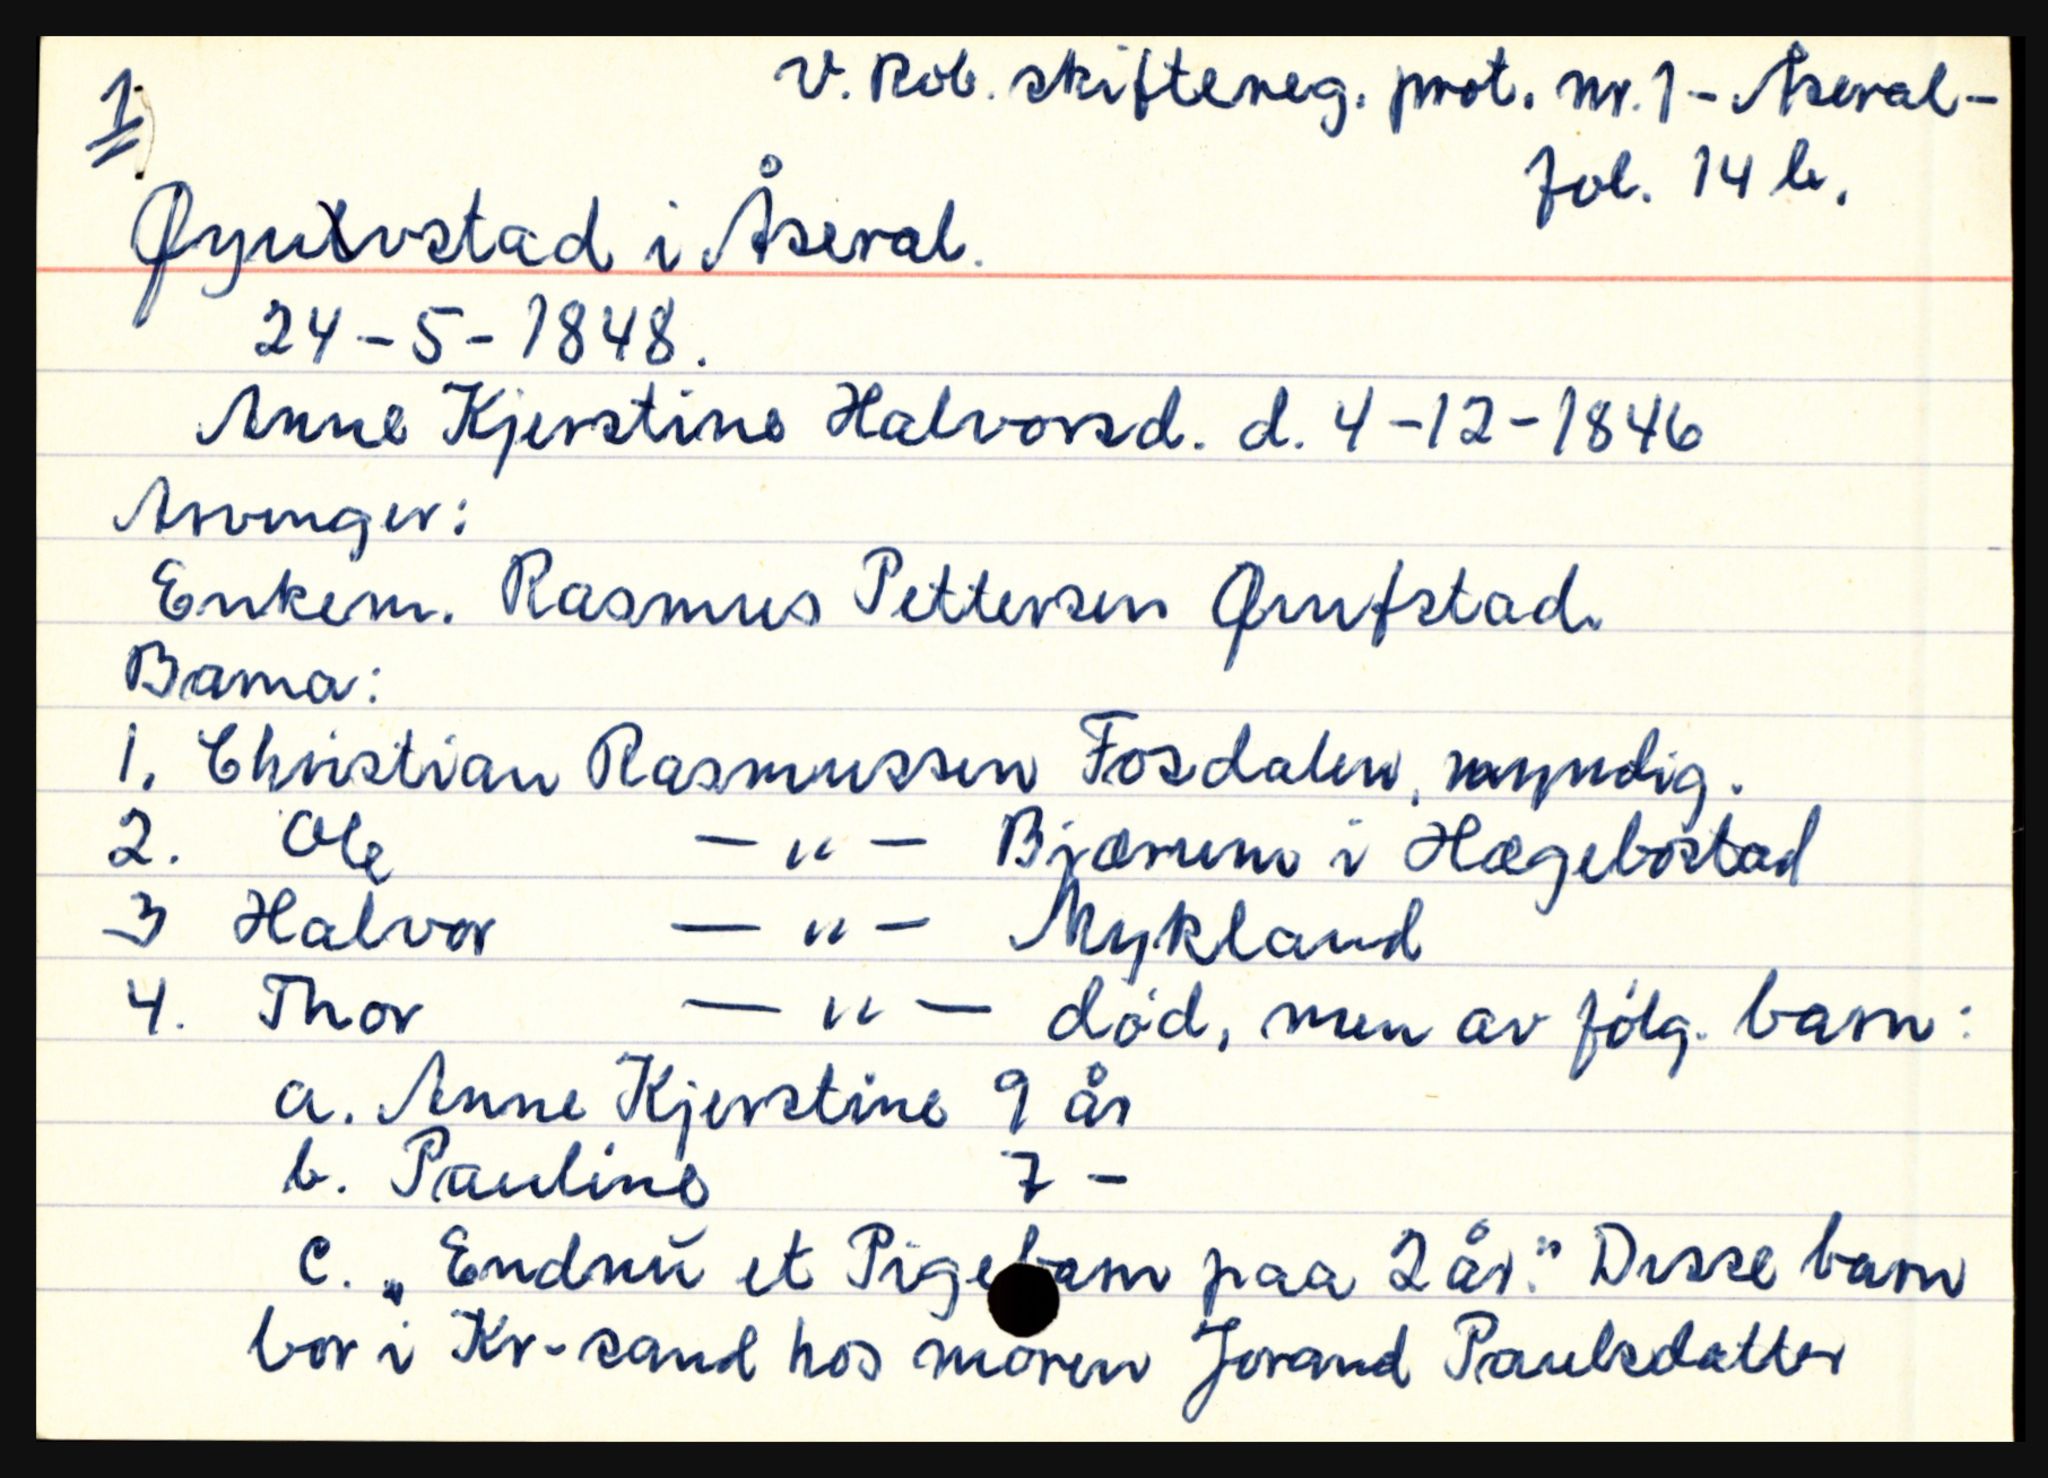 1) V. Rob. skiftereg. prot. nr. 1 - Åseral -
fol. 14 b.
Øyulvstad i Åseral.
24-5-1848.
Anne Kjerstine Halvorsd. d. 4-12-1846
Arvinger:
Enkem. Rasmus Pettersen Ørufstad.
Barna:
1. Christian Rasmussen Fosdalen, myndig.
2. Ole — " — Bjærum i Hægebostad
3 Halvor — " — Mykland
4. Thor — " — død, men av følg. barn:
a. Anne Kjerstine 9 år
b. Pauline 7 -
c. „Endnu et Pigebarn paa 2 år." Disse barn
bor i Kr-sand hos moren Jorand Paulsdatter